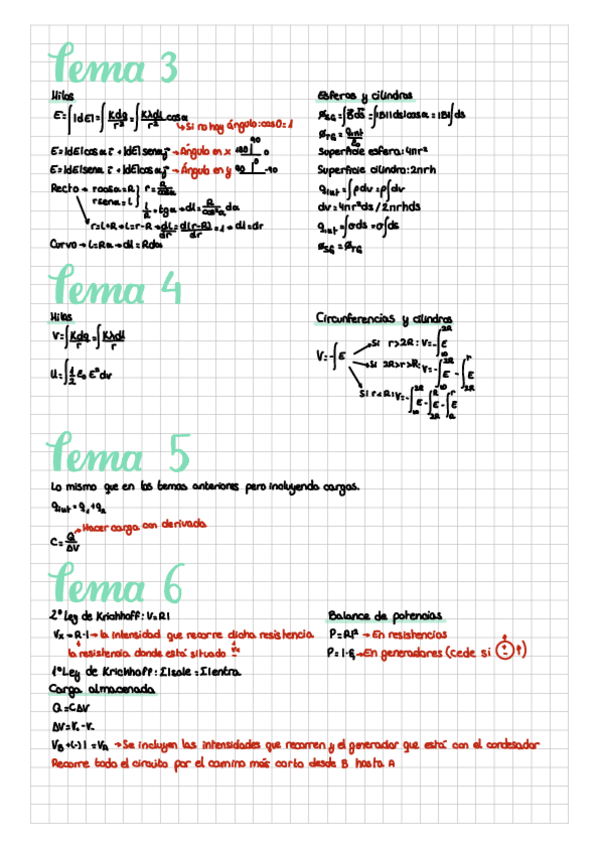 Tema 3
Hilos
E=∫|dE|=∫Kdq/r²=∫Kλdl/r² cosα
↳Si no hay ángulo:cos0=1
E=|dE|cosα î + |dE|senα ĵ → Ángulo en x 180 90 0
E=|dE|senα î + |dE|cosα ĵ → Ángulo en y 90 0 -90
Recto → rcosα=R } r=R/cosα
rsenα=l } l/R=tgα→dl=R/cos²α dα
r=l+R→l=r-R→dl/dr=d(r-R)/dr=1→dl=dr
Curvo→L=Rα→dl=Rdα
Esferas y cilindros
Ø=∫Eds=∫|E||ds|cosα=|E|∫ds
Ø=qint/ε0
Superficie esfera:4πr²
Superficie cilindro:2πrh
qint=∫ρdv=ρ∫dv
dv=4πr²ds/2πrhds
qint=∫σds=σ∫ds
Øsg=Øtg
Tema 4
Hilos
V=∫Kdq/r=∫Kλdl/r
U=∫1/2 ε0 E²dv
Circunferencias y cilindros
V=-∫E
Si r>2R:V=-∫E
Si 2R>r>R:V=-∫E-∫E
Si r<R:V=-∫E-∫E-∫E
Tema 5
Lo mismo que en los temas anteriores pero incluyendo cargas.
qint=q1+q2
C=Q/ΔV →Hacer carga con derivada
Tema 6
2ªLey de Krichhoff:V=RI
Vx=R·I→la intensidad que recorre dicha resistencia
la resistencia donde está situado Vx
1ªLey de Krichhoff:ΣIsale=ΣIentra
Carga almacenada
Q=CΔV
ΔV=V+-V-
VB+(-)I=VA →Se incluyen las intensidades que recorren y el generador que está con el condesador
Recorre todo el circuito por el camino más corto desde B hasta A
Balance de potencias
P=RI²→En resistencias
P=I·E→En generadores (cede si ↑)